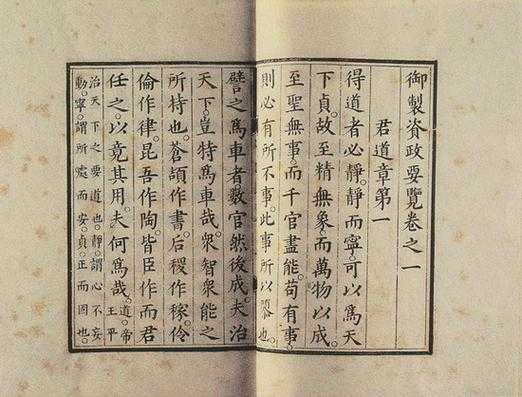 御製資政要覽卷之一
君道章第一
得道者必靜。靜而寧。可以爲天
下貞。故至精無象而萬物以成。
至聖無事。而千官盡能。苟有事。
則必有所不事。此事所以隳也。
譬之爲車者數官然後成。夫治
天下。豈特爲車哉。衆智衆能之
所持也。蒼頡作書。后稷作稼。伶
倫作律。昆吾作陶。皆臣作而君
任之。以竟其用。夫何爲哉。
道。帝
王平
治天下之要道也。靜。謂心不妄
動。寧。謂所處而安。貞。正而固也。